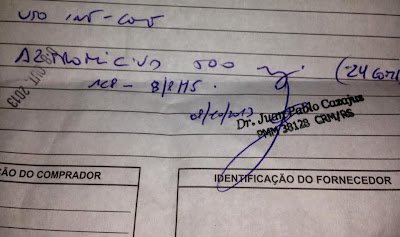 USO INT - CONT
AZITROMICINA 500 mg. (24 COMP
1CP - 8/8 HS.
08/10/2013
OUT. 2013
Dr. Juan Pablo Cazajus
PMM 38128 CRM/RS
ÇÃO DO COMPRADOR
IDENTIFICAÇÃO DO FORNECEDOR